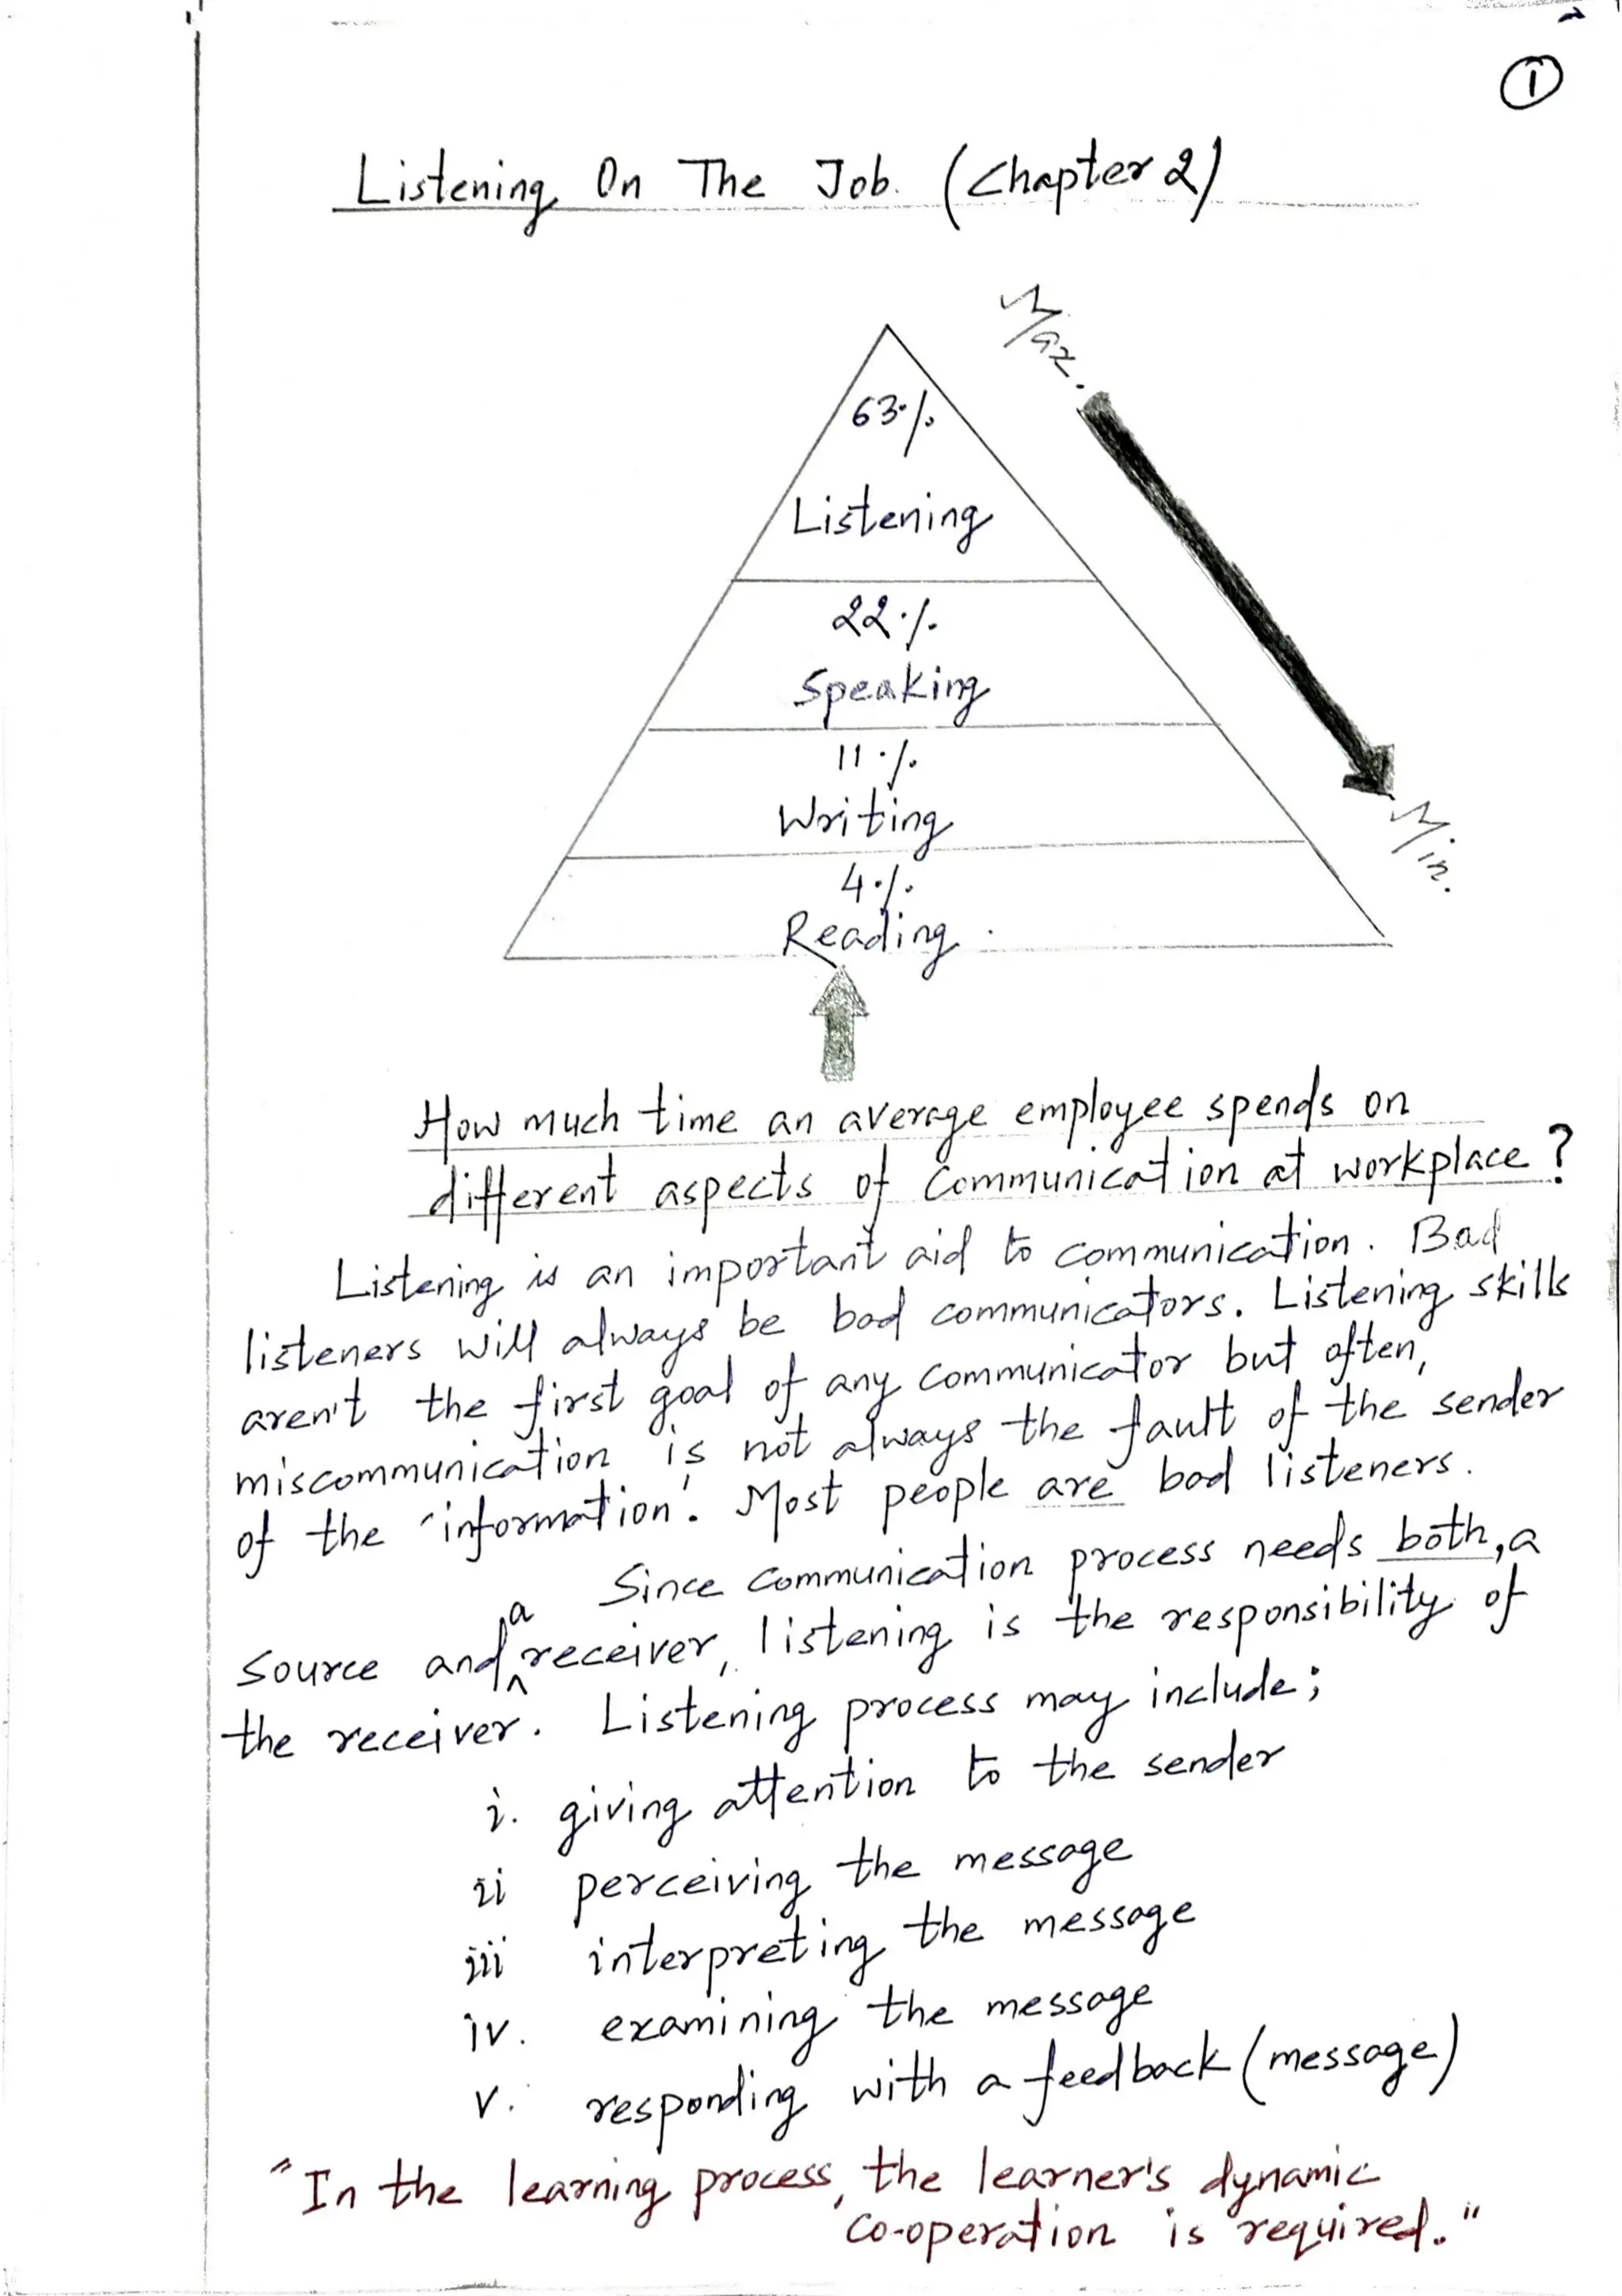 1
Listening On The Job. (Chapter 2)
Max.
63%
Listening
22%
Speaking
11%
Writing
4%
Reading
Min.
How much time an average employee spends on
different aspects of Communication at workplace?
Listening is an important aid to communication. Bad
listeners will always be bad communicators. Listening skills
aren't the first goal of any communicator but often,
miscommunication is not always the fault of the sender
of the 'information'. Most people are bad listeners.
Since communication process needs both, a
source and a receiver, listening is the responsibility of
the receiver. Listening process may include;
i. giving attention to the sender
ii perceiving the message
iii interpreting the message
iv. examining the message
v. responding with a feedback (message)
"In the learning process, the learner's dynamic
co-operation is required."